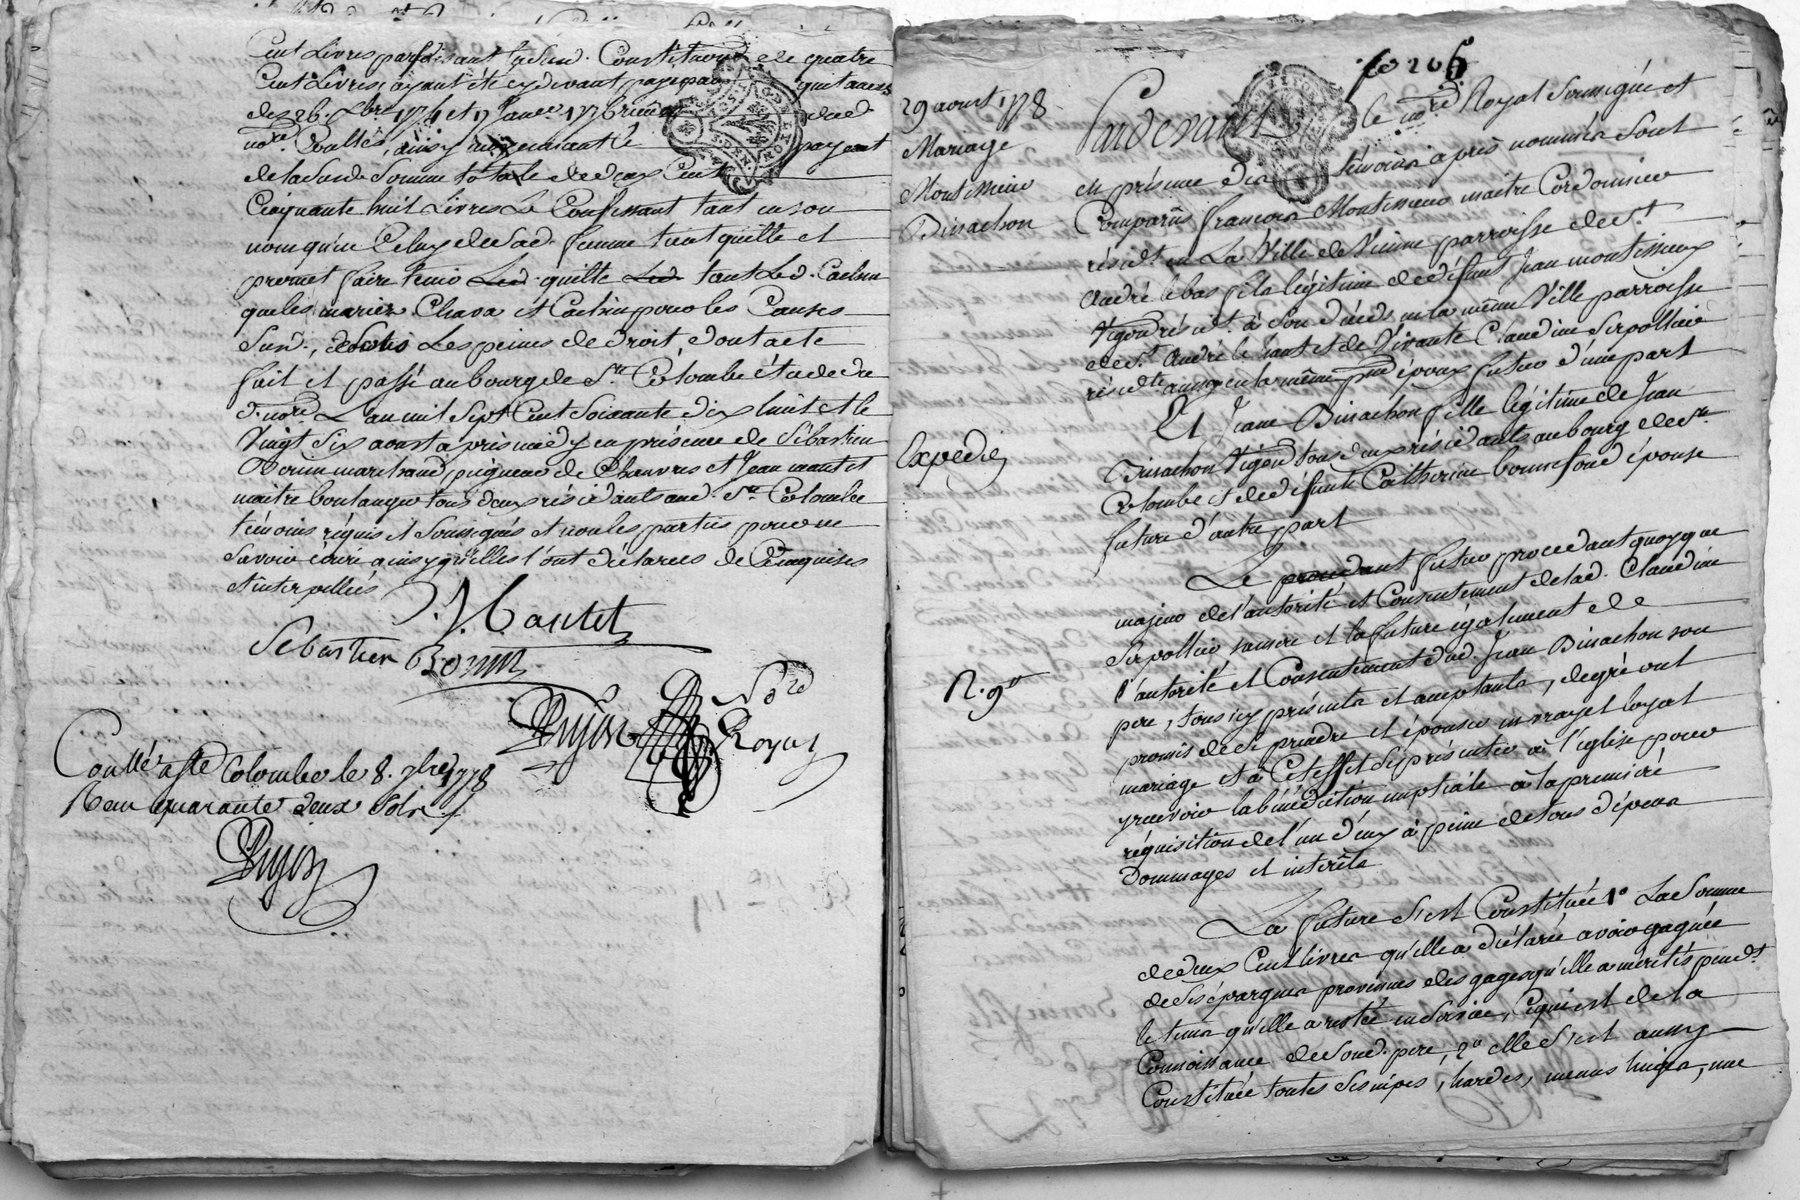 Cent Livres parfaisant lad. Constitution de quatre
Cent Livres, ayant été cydevant payé par quittances
des 26. Xbre 1774 et 17 Janer 1776
nore. ainsy payent
de lasusde Somme totale de deux Cent
Cinquante huit Livres Le Confessant tant en son
nom qu'en Celuy de sad. femme tient quitte et
promet faire tenir Led quitte Led tant Led. Cachin
que les mariez Chava et Cachin pour les Causes
Susd., Les peines de droit dont acte
fait et passé au bourg de Ste. Colombe étude du
d. nore L'an mil Sept Cent Soixante dix huit et le
Vingt Six aoust après midy en présence de Sébastien
Bonin marchand peigneur de Chanvres et Jean mantet
maitre boulanger tous deux résidants aud. Ste Colombe
témoins réquis et Soussignés et non les parties pour ne
Savoir écrire ainsy qu'elles l'ont déclarées de Ce enquises
et interpellées
J. Mantet
Sébastien Bonin
Nore
Royal
Conllé a Ste Colombe le 8. 7bre 1778
Reçu quarante deux Sols
fo 206
29 aoust 1778
Mariage
Montisseux
Dinachon
Expédié
N. 9
Pardevant le nore Royal Soussigné et
en présence des témoins après nommés Sont
Comparûs françois Montisseux maitre Cordonnier
résidt. en La Ville de Vienne parroisse de St.
André le bas fils légitime de défunt Jean montisseux
Vigon résidt. à Son décéds en la même Ville parroisse
de St. André le haut et de Vivante Claudine Serpollier
résidte aussy en la même pnte époux futur d'une part
Et Jeanne Dinachon fille légitime de Jean
Dinachon Vigon tous deux résidants au bourg de Ste
Colombe et de défunte Catherine bonnefond épouse
future d'autre part
Le procedant futur procedant quoyque
majeur de l'autorité et Consentement de lad. Claudine
Serpollier sa mere et la future également de
l'autorité et Consentement dud. Jean Dinachon son
pere, tous icy présents et acceptants, de gré ont
promis de se prendre et épouser en vray et loyal
mariage et à Cet effet Se présenter à l'église pour
y recevoir la bénédiction nuptiale à la premiere
réquisition de l'un d'eux à peine de tous dépens
Dommages et intérêts
La future s'est Constituée 1o La Somme
de deux Cent livres qu'elle a déclarée avoir gagnée
de Ses épargnes provenues des gages qu'elle a mérités pendt.
le tems qu'elle a restée en Service, Ce qui est de la
Connoissance de Soud. pere, 2o elle S'est aussy
Constituée toutes Ses nipes, hardes, menus linges, une